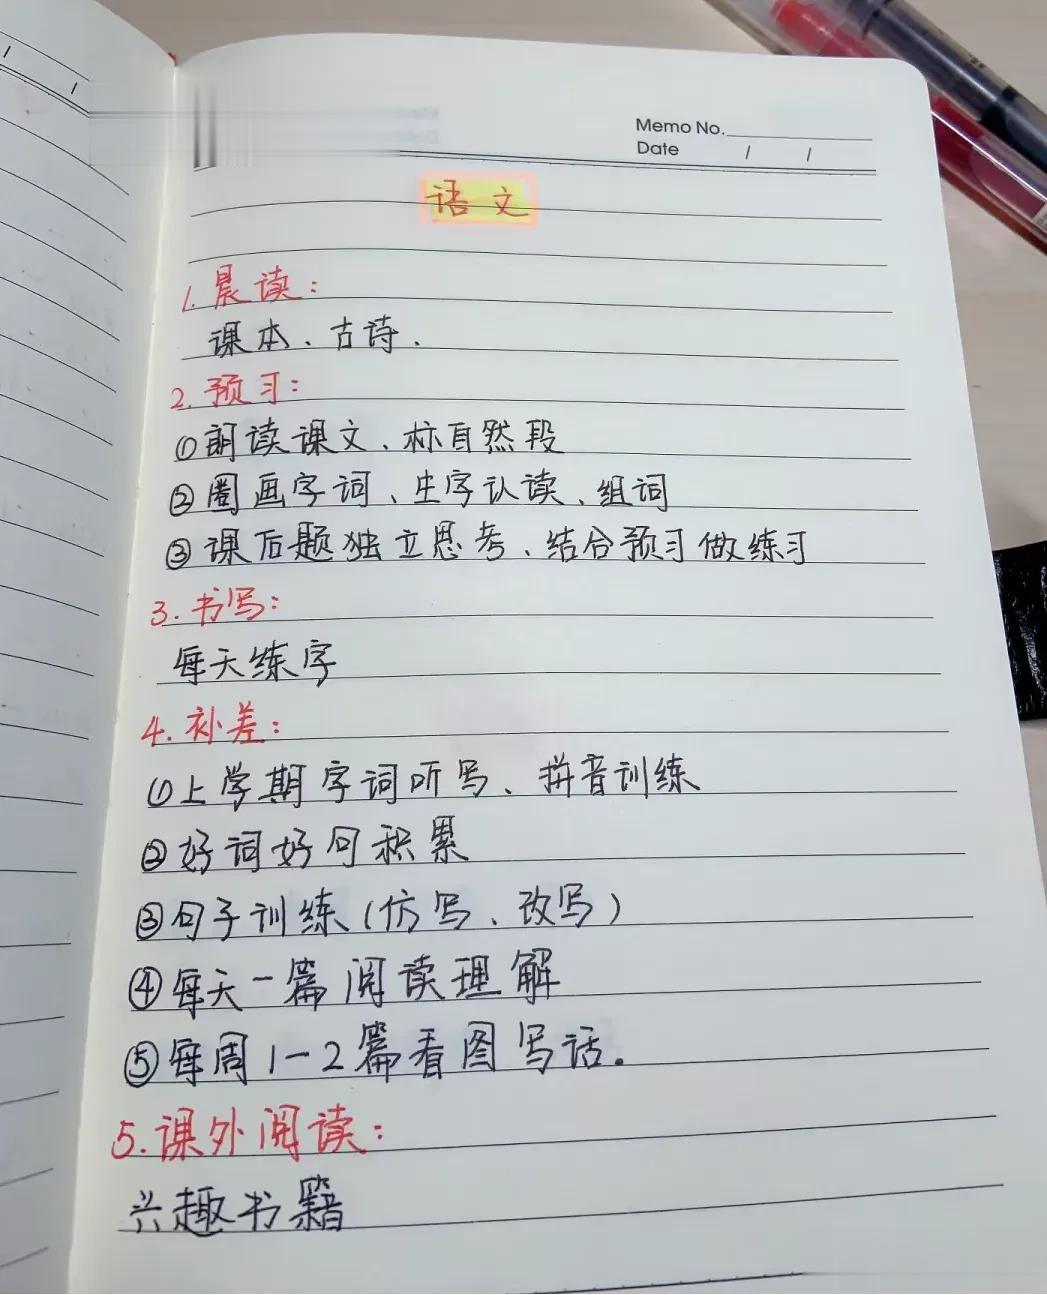 Memo No.
Date / /
语文
1.晨读：
课本、古诗.
2.预习：
①朗读课文、标自然段
②圈画字词、生字认读、组词
③课后题独立思考、结合预习做练习
3.书写：
每天练字
4.补差：
①上学期字词听写、拼音训练
②好词好句积累
③句子训练(仿写、改写)
④每天一篇阅读理解
⑤每周1-2篇看图写话.
5.课外阅读：
兴趣书籍